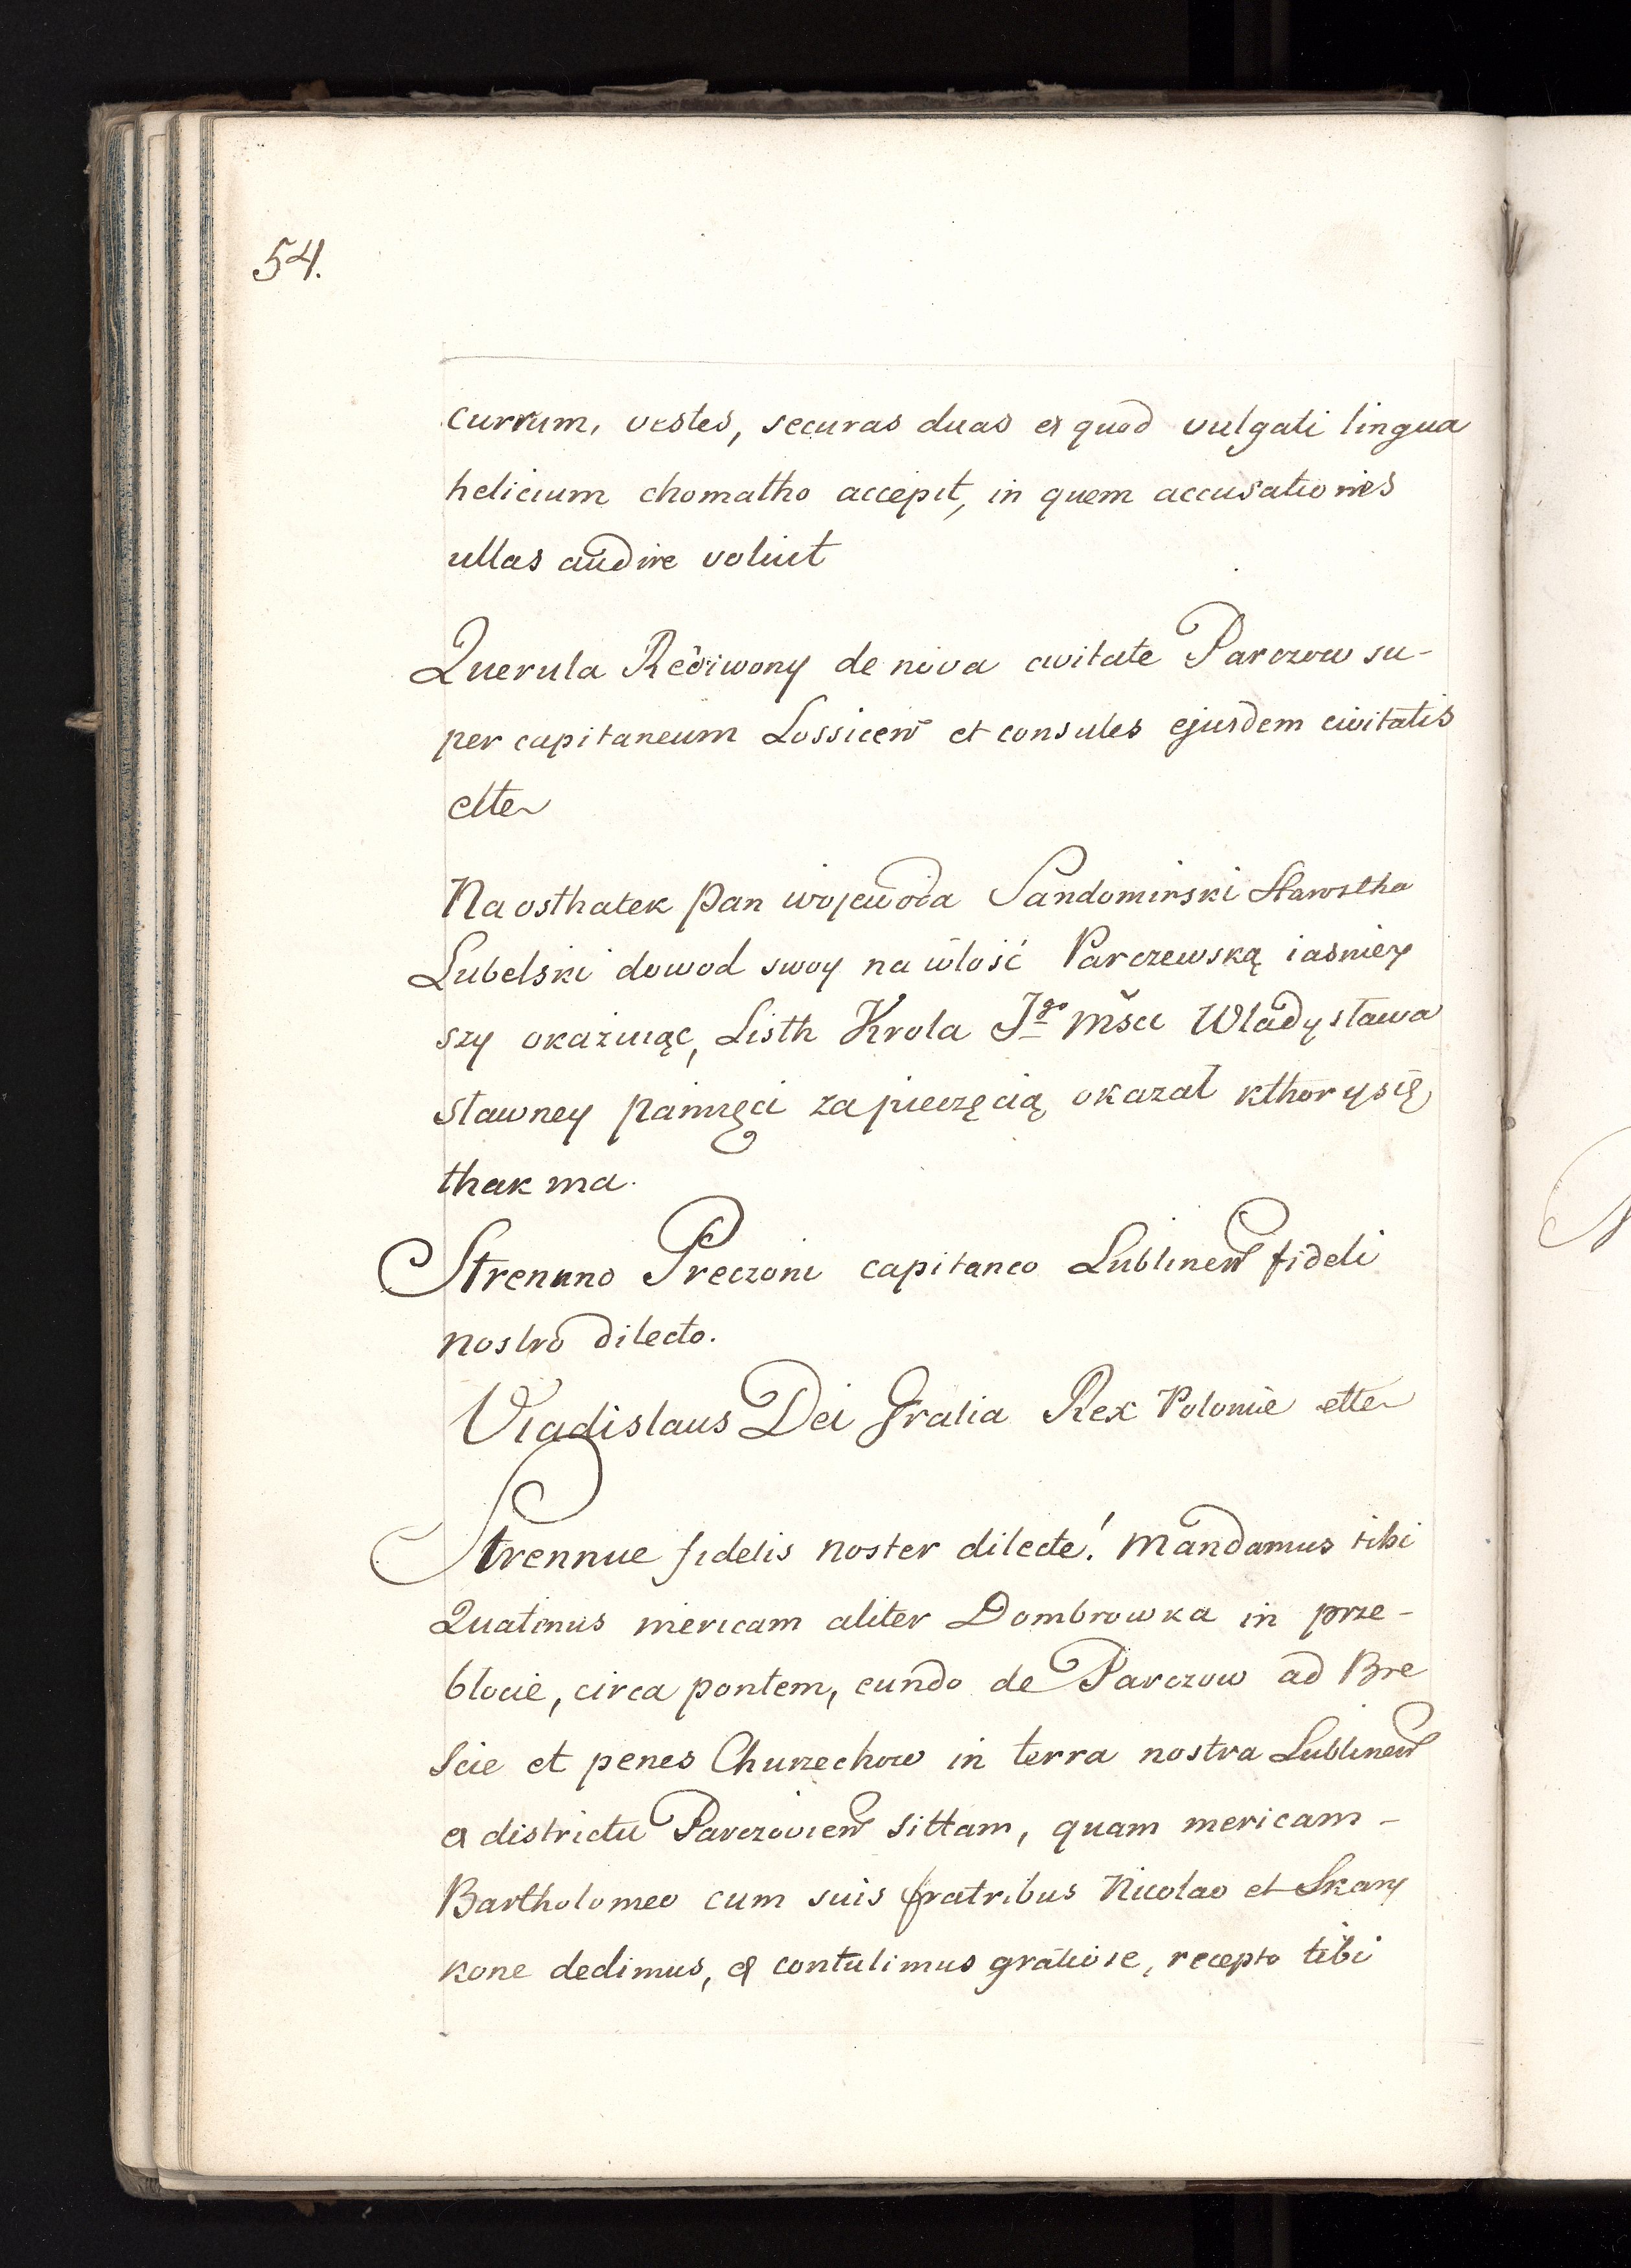 54.
currum, vestes, securas duas et quod vulgati lingua
helicium chomatho accepit, in quem accusationes
ullas audire voluit
Querula Rediwony de nova civitate Parczow su-
per capitaneum Lossicen̄ et consules ejusdem civitatis
ette
Na osthatek Pan wojewoda Sandomirski Starostha
Lubelski dowod swoy na włość Parczewską iasniey
szy okazuiąc, Listh Krola Jgo Mści Władysława
sławney pamięci za pieczęcią okazał kthory się
thak ma.
Strenuno Preczoni capitaneo Lublinen̄ fideli
nostro dilecto.
Vladislaus Dei Gratia Rex Polonie ette
Strennue fidelis noster dilecte! Mandamus tibi
Quatinus mericam aliter Dombrowka in prze-
blocie, circa pontem, eundo de Parczow ad Bre
scie et penes Churzechow in terra nostra Lublinen̄
et districtu Parczovien̄ sittam, quam mericam -
Bartholomeo cum suis fratribus Nicolao et Skary
kone dedimus, et contulimus gratiose, recepto tibi